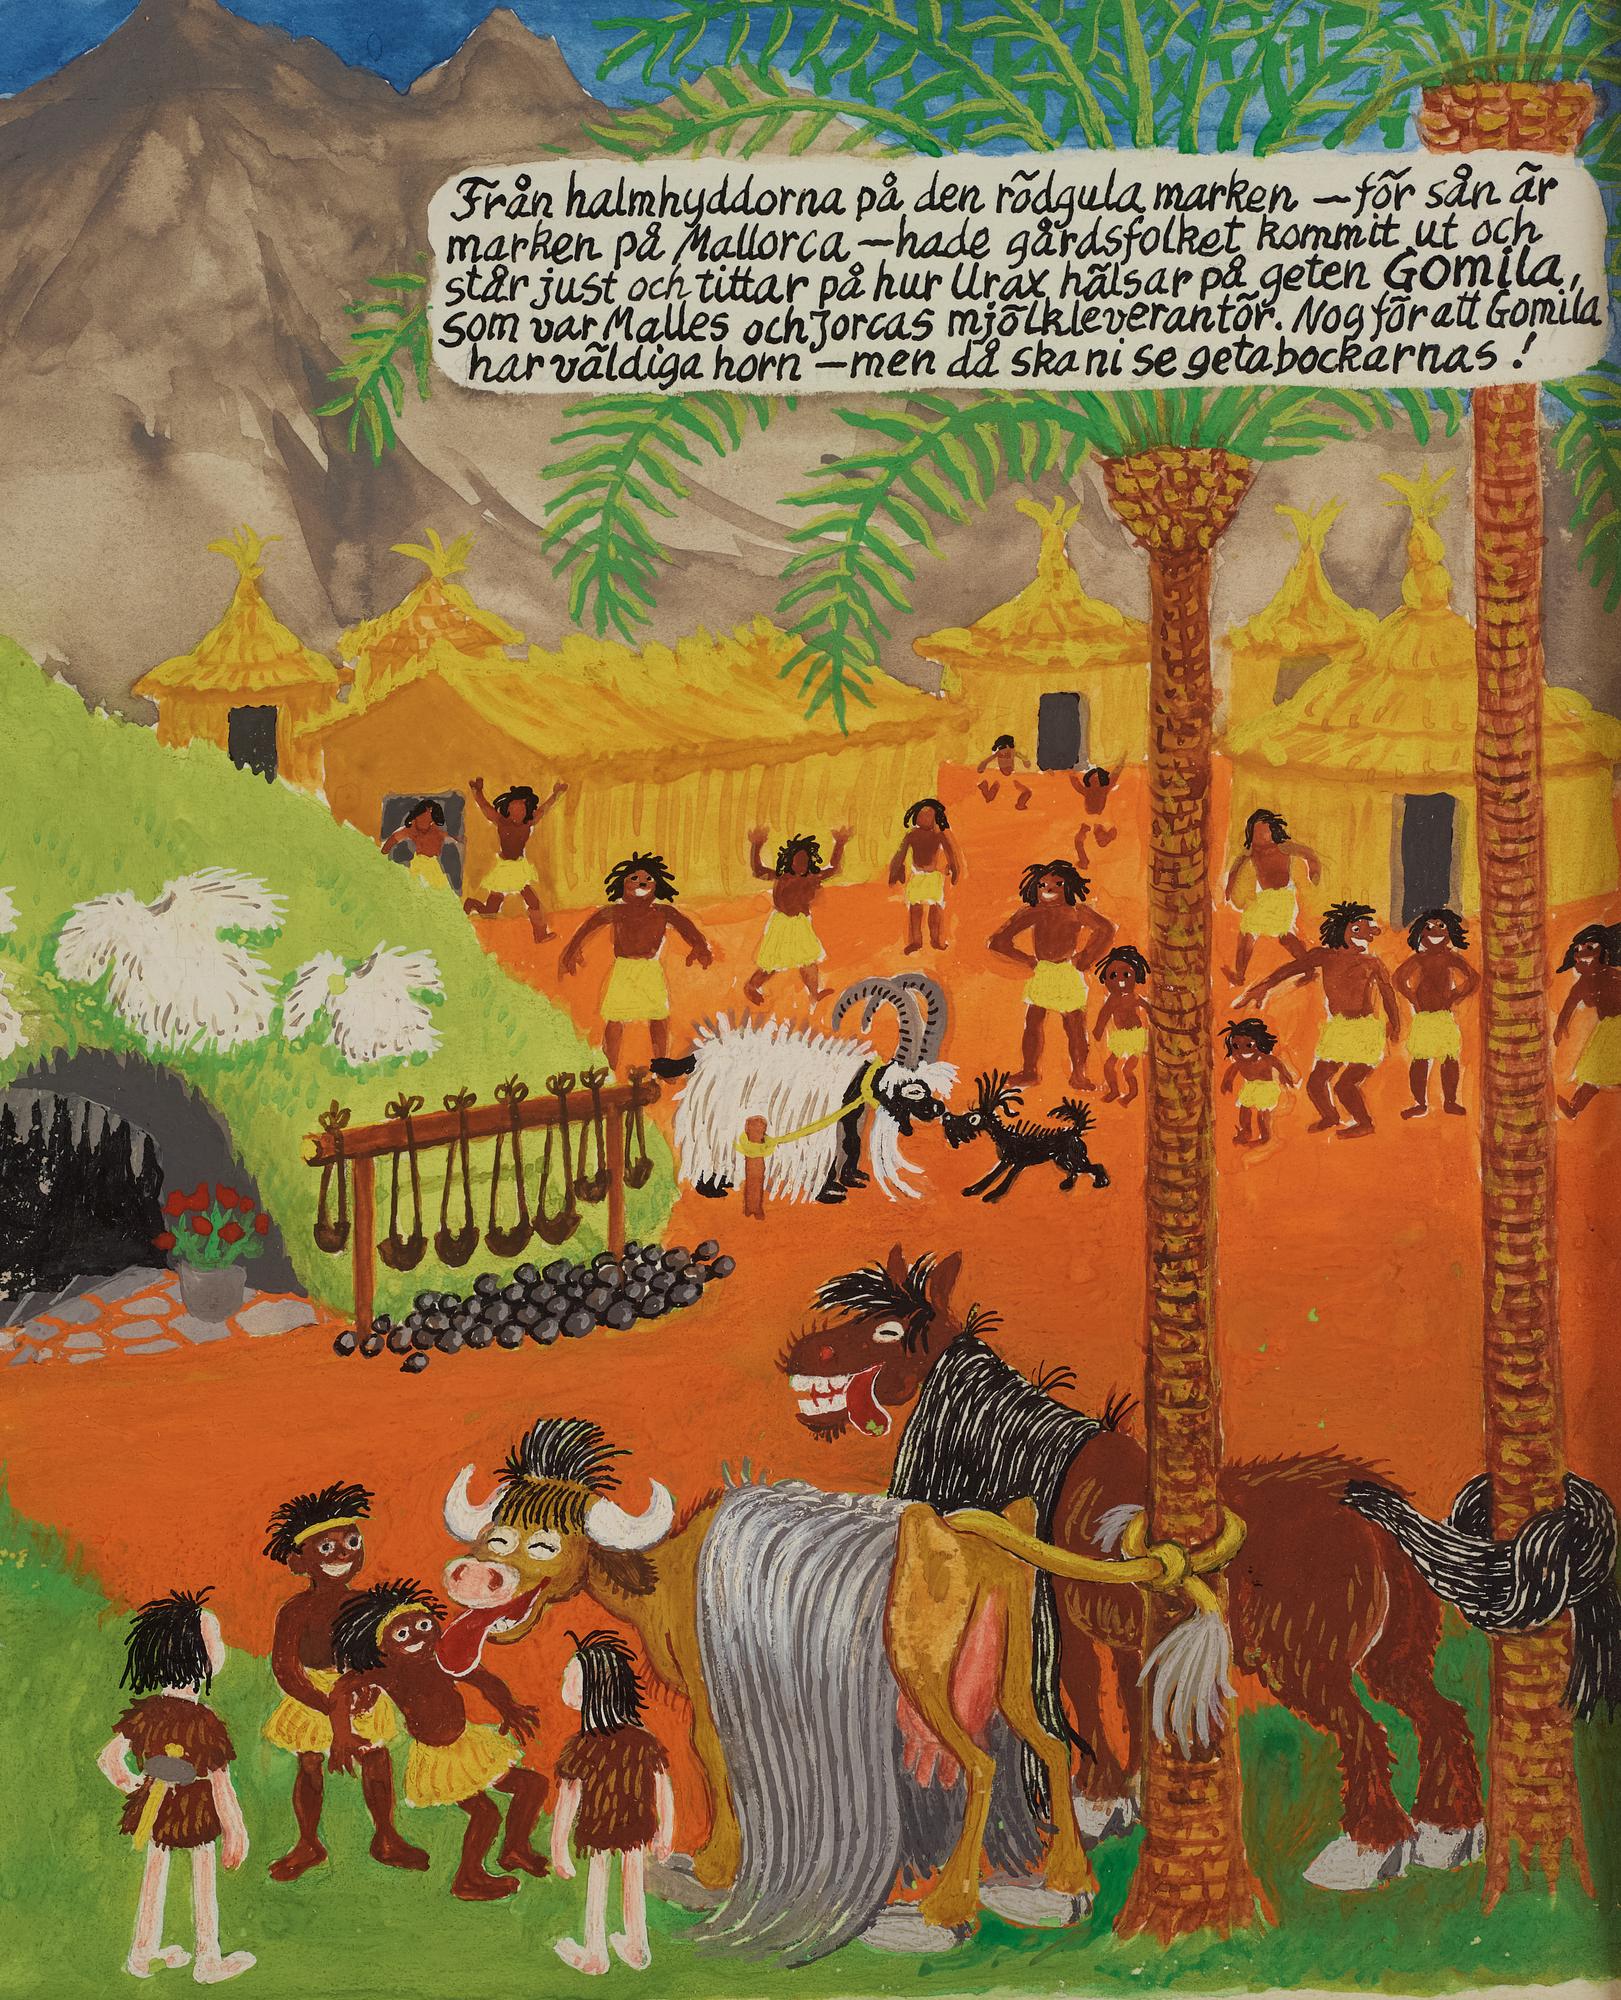 Från halmhyddorna på den rödgula marken – för sån är
marken på Mallorca – hade gårdsfolket kommit ut och
står just och tittar på hur Urax hälsar på geten Gomila,
som var Malles och Jorcas mjölkleverantör. Nog för att Gomila
har väldiga horn – men då ska ni se getabockarnas!